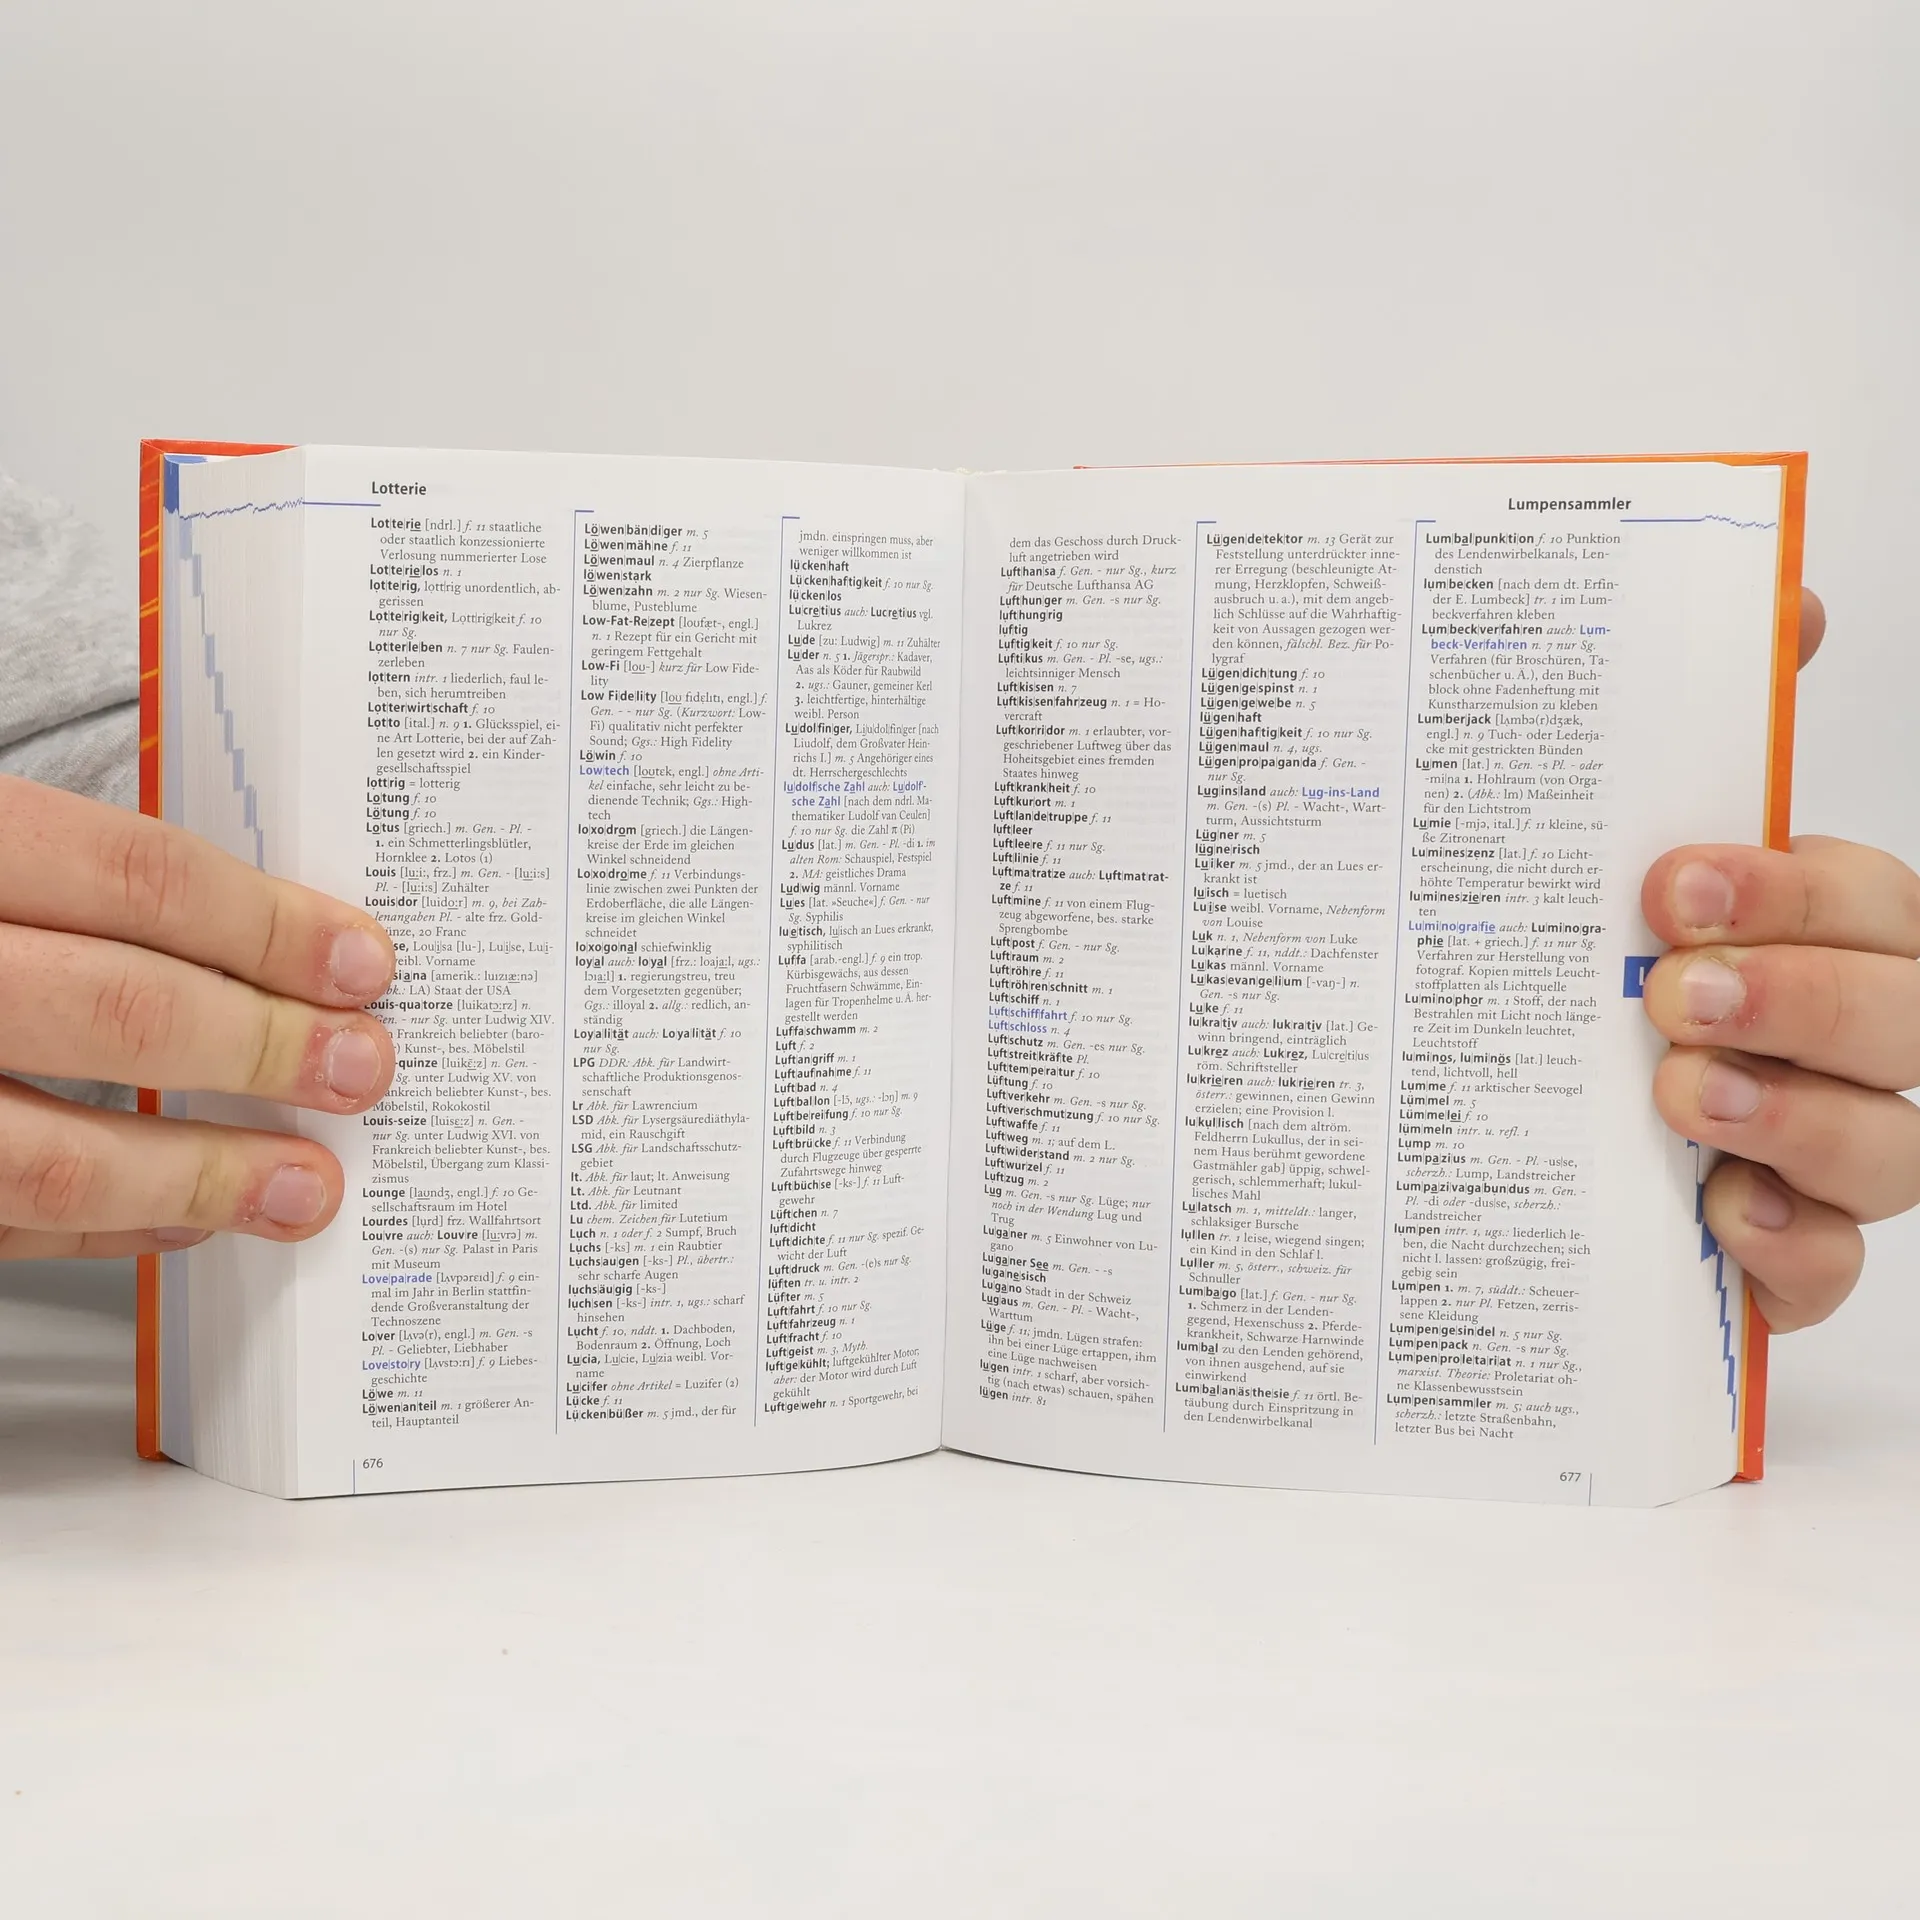 Lotterie
Lot|te|rie [ndrl.] f. 11 staatliche
oder staatlich konzessionierte
Verlosung nummerierter Lose
Lot|te|rie|los n. 1
lot|te|rig, lott|rig unordentlich, ab-
gerissen
Lot|te|rig|keit, Lott|rig|keit f. 10
nur Sg.
Lot|ter|le|ben n. 7 nur Sg. Faulen-
zerleben
lot|tern intr. 1 liederlich, faul le-
ben, sich herumtreiben
Lot|ter|wirt|schaft f. 10
Lot|to [ital.] n. 9 1. Glücksspiel, ei-
ne Art Lotterie, bei der auf Zah-
len gesetzt wird 2. ein Kinder-
gesellschaftsspiel
lott|rig = lotterig
Lo|tung f. 10
Lö|tung f. 10
Lo|tus [griech.] m. Gen. - Pl. -
1. ein Schmetterlingsblütler,
Hornklee 2. Lotos (1)
Louis [lu:i:, frz.] m. Gen. - [lu:i:s]
Pl. - [lu:i:s] Zuhälter
Louis|dor [luido:r] m. 9, bei Zah-
lenangaben Pl. - alte frz. Gold-
münze, 20 Franc
Lou|i|sa [lu-], Lu|i|se, Lu|i-
weibl. Vorname
[amerik.: luızıæ:nə]
LA) Staat der USA
Louis-qua|torze [luikatɔ:rz] n.
Gen. - nur Sg. unter Ludwig XIV.
Frankreich beliebter (baro-
Kunst-, bes. Möbelstil
-quinze [luikɛ̃:z] n. Gen. -
Sg. unter Ludwig XV. von
Frankreich beliebter Kunst-, bes.
Möbelstil, Rokokostil
Louis-seize [luisɛ:z] n. Gen. -
nur Sg. unter Ludwig XVI. von
Frankreich beliebter Kunst-, bes.
Möbelstil, Übergang zum Klassi-
zismus
Lounge [laʊndʒ, engl.] f. 10 Ge-
sellschaftsraum im Hotel
Lourdes [lurd] frz. Wallfahrtsort
Lou|vre auch: Louv|re [lu:vrə] m.
Gen. -(s) nur Sg. Palast in Paris
mit Museum
Love|pa|rade [lʌvpəreıd] f. 9 ein-
mal im Jahr in Berlin stattfin-
dende Großveranstaltung der
Technoszene
Lo|ver [lʌvə(r), engl.] m. Gen. -s
Pl. - Geliebter, Liebhaber
Love|sto|ry [lʌvstɔ:rı] f. 9 Liebes-
geschichte
Lö|we m. 11
Lö|wen|an|teil m. 1 größerer An-
teil, Hauptanteil
676
Lö|wen|bän|di|ger m. 5
Lö|wen|mäh|ne f. 11
Lö|wen|maul n. 4 Zierpflanze
lö|wen|stark
Lö|wen|zahn m. 2 nur Sg. Wiesen-
blume, Pusteblume
Low-Fat-Re|zept [loʊfæt-, engl.]
n. 1 Rezept für ein Gericht mit
geringem Fettgehalt
Low-Fi [loʊ-] kurz für Low Fide-
lity
Low Fi|de|li|ty [loʊ fidɛlıtı, engl.] f.
Gen. - - nur Sg. (Kurzwort: Low-
Fi) qualitativ nicht perfekter
Sound; Ggs.: High Fidelity
Lö|win f. 10
Low|tech [loʊtɛk, engl.] ohne Arti-
kel einfache, sehr leicht zu be-
dienende Technik; Ggs.: High-
tech
lo|xo|drom [griech.] die Längen-
kreise der Erde im gleichen
Winkel schneidend
Lo|xo|dro|me f. 11 Verbindungs-
linie zwischen zwei Punkten der
Erdoberfläche, die alle Längen-
kreise im gleichen Winkel
schneidet
lo|xo|go|nal schiefwinklig
loy|al auch: lo|yal [frz.: loaja:l, ugs.:
lɔıa:l] 1. regierungstreu, treu
dem Vorgesetzten gegenüber;
Ggs.: illoyal 2. allg.: redlich, an-
ständig
Loy|a|li|tät auch: Lo|ya|li|tät f. 10
nur Sg.
LPG DDR: Abk. für Landwirt-
schaftliche Produktionsgenos-
senschaft
Lr Abk. für Lawrencium
LSD Abk. für Lysergsäurediäthyla-
mid, ein Rauschgift
LSG Abk. für Landschaftsschutz-
gebiet
lt. Abk. für laut; lt. Anweisung
Lt. Abk. für Leutnant
Ltd. Abk. für limited
Lu chem. Zeichen für Lutetium
Luch n. 1 oder f. 2 Sumpf, Bruch
Luchs [-ks] m. 1 ein Raubtier
Luchs|au|gen [-ks-] Pl., übertr.:
sehr scharfe Augen
luchs|äu|gig [-ks-]
luch|sen [-ks-] intr. 1, ugs.: scharf
hinsehen
Lucht f. 10, nddt. 1. Dachboden,
Bodenraum 2. Öffnung, Loch
Lu|cia, Lu|cie, Lu|zia weibl. Vor-
name
Lu|ci|fer ohne Artikel = Luzifer (2)
Lü|cke f. 11
Lü|cken|bü|ßer m. 5 jmd., der für
jmdn. einspringen muss, aber
weniger willkommen ist
lü|cken|haft
Lü|cken|haf|tig|keit f. 10 nur Sg.
lü|cken|los
Lu|cre|ti|us auch: Luc|re|ti|us vgl.
Lukrez
Lu|de [zu: Ludwig] m. 11 Zuhälter
Lu|der n. 5 1. Jägerspr.: Kadaver,
Aas als Köder für Raubwild
2. ugs.: Gauner, gemeiner Kerl
3. leichtfertige, hinterhältige
weibl. Person
Lu|dol|fin|ger, Li|u|dol|fin|ger [nach
Liudolf, dem Großvater Hein-
richs I.] m. 5 Angehöriger eines
dt. Herrschergeschlechts
lu|dolf|sche Zahl auch: Lu|dolf-
sche Zahl [nach dem ndrl. Ma-
thematiker Ludolf van Ceulen]
f. 10 nur Sg. die Zahl π (Pi)
Lu|dus [lat.] m. Gen. - Pl. -di 1. im
alten Rom: Schauspiel, Festspiel
2. MA: geistliches Drama
Lud|wig männl. Vorname
Lu|es [lat. »Seuche«] f. Gen. - nur
Sg. Syphilis
lu|e|tisch, lu|isch an Lues erkrankt,
syphilitisch
Luf|fa [arab.-engl.] f. 9 ein trop.
Kürbisgewächs, aus dessen
Fruchtfasern Schwämme, Ein-
lagen für Tropenhelme u. Ä. her-
gestellt werden
Luf|fa|schwamm m. 2
Luft f. 2
Luft|an|griff m. 1
Luft|auf|nah|me f. 11
Luft|bad n. 4
Luft|bal|lon [-lɔ̃, ugs.: -lɔŋ] m. 9
Luft|be|rei|fung f. 10 nur Sg.
Luft|bild n. 3
Luft|brü|cke f. 11 Verbindung
durch Flugzeuge über gesperrte
Zufahrtswege hinweg
Luft|büch|se [-ks-] f. 11 Luft-
gewehr
Lüft|chen n. 7
luft|dicht
Luft|dich|te f. 11 nur Sg. spezif. Ge-
wicht der Luft
Luft|druck m. Gen. -(e)s nur Sg.
lüf|ten tr. u. intr. 2
Lüf|ter m. 5
Luft|fahrt f. 10 nur Sg.
Luft|fahr|zeug n. 1
Luft|fracht f. 10
Luft|geist m. 3, Myth.
luft|ge|kühlt; luftgekühlter Motor,
aber: der Motor wird durch Luft
gekühlt
Luft|ge|wehr n. 1 Sportgewehr, bei
Lumpensammler
dem das Geschoss durch Druck-
luft angetrieben wird
Luft|han|sa f. Gen. - nur Sg., kurz
für Deutsche Lufthansa AG
Luft|hun|ger m. Gen. -s nur Sg.
luft|hung|rig
luf|tig
Luf|tig|keit f. 10 nur Sg.
Luf|ti|kus m. Gen. - Pl. -se, ugs.:
leichtsinniger Mensch
Luft|kis|sen n. 7
Luft|kis|sen|fahr|zeug n. 1 = Ho-
vercraft
Luft|kor|ri|dor m. 1 erlaubter, vor-
geschriebener Luftweg über das
Hoheitsgebiet eines fremden
Staates hinweg
Luft|krank|heit f. 10
Luft|kur|ort m. 1
Luft|lan|de|trup|pe f. 11
luft|leer
Luft|lee|re f. 11 nur Sg.
Luft|li|nie f. 11
Luft|ma|trat|ze auch: Luft|mat|rat-
ze f. 11
Luft|mi|ne f. 11 von einem Flug-
zeug abgeworfene, bes. starke
Sprengbombe
Luft|post f. Gen. - nur Sg.
Luft|raum m. 2
Luft|röh|re f. 11
Luft|röh|ren|schnitt m. 1
Luft|schiff n. 1
Luft|schiff|fahrt f. 10 nur Sg.
Luft|schloss n. 4
Luft|schutz m. Gen. -es nur Sg.
Luft|streit|kräf|te Pl.
Luft|tem|pe|ra|tur f. 10
Lüf|tung f. 10
Luft|ver|kehr m. Gen. -s nur Sg.
Luft|ver|schmut|zung f. 10 nur Sg.
Luft|waf|fe f. 11
Luft|weg m. 1; auf dem L.
Luft|wi|der|stand m. 2 nur Sg.
Luft|wur|zel f. 11
Luft|zug m. 2
Lug m. Gen. -s nur Sg. Lüge; nur
noch in der Wendung Lug und
Trug
Lu|ga|ner m. 5 Einwohner von Lu-
gano
Lu|ga|ner See m. Gen. - -s
lu|ga|ne|sisch
Lu|ga|no Stadt in der Schweiz
Lug|aus m. Gen. - Pl. - Wacht-,
Wartturm
Lü|ge f. 11; jmdn. Lügen strafen:
ihn bei einer Lüge ertappen, ihm
eine Lüge nachweisen
lu|gen intr. 1 scharf, aber vorsich-
tig (nach etwas) schauen, spähen
lü|gen intr. 81
Lü|gen|de|tek|tor m. 13 Gerät zur
Feststellung unterdrückter inne-
rer Erregung (beschleunigte At-
mung, Herzklopfen, Schweiß-
ausbruch u. a.), mit dem angeb-
lich Schlüsse auf die Wahrhaftig-
keit von Aussagen gezogen wer-
den können, fälschl. Bez. für Po-
lygraf
Lü|gen|dich|tung f. 10
Lü|gen|ge|spinst n. 1
Lü|gen|ge|we|be n. 5
lü|gen|haft
Lü|gen|haf|tig|keit f. 10 nur Sg.
Lü|gen|maul n. 4, ugs.
Lü|gen|pro|pa|gan|da f. Gen. -
nur Sg.
Lug|ins|land auch: Lug-ins-Land
m. Gen. -(s) Pl. - Wacht-, Wart-
turm, Aussichtsturm
Lüg|ner m. 5
lüg|ne|risch
Lu|i|ker m. 5 jmd., der an Lues er-
krankt ist
lu|isch = luetisch
Lu|i|se weibl. Vorname, Nebenform
von Louise
Luk n. 1, Nebenform von Luke
Lu|kar|ne f. 11, nddt.: Dachfenster
Lu|kas männl. Vorname
Lu|kas|evan|ge|li|um [-vaŋ-] n.
Gen. -s nur Sg.
Lu|ke f. 11
lu|kra|tiv auch: luk|ra|tiv [lat.] Ge-
winn bringend, einträglich
Lu|krez auch: Luk|rez, Lu|cre|ti|us
röm. Schriftsteller
lu|krie|ren auch: luk|rie|ren tr. 3,
österr.: gewinnen, einen Gewinn
erzielen; eine Provision l.
lu|kul|lisch [nach dem altröm.
Feldherrn Lukullus, der in sei-
nem Haus berühmt gewordene
Gastmähler gab] üppig, schwel-
gerisch, schlemmerhaft; lukul-
lisches Mahl
Lu|latsch m. 1, mitteldt.: langer,
schlaksiger Bursche
lul|len tr. 1 leise, wiegend singen;
ein Kind in den Schlaf l.
Lul|ler m. 5, österr., schweiz. für
Schnuller
Lum|ba|go [lat.] f. Gen. - nur Sg.
1. Schmerz in der Lenden-
gegend, Hexenschuss 2. Pferde-
krankheit, Schwarze Harnwinde
lum|bal zu den Lenden gehörend,
von ihnen ausgehend, auf sie
einwirkend
Lum|bal|an|äs|the|sie f. 11 örtl. Be-
täubung durch Einspritzung in
den Lendenwirbelkanal
Lum|bal|punk|ti|on f. 10 Punktion
des Lendenwirbelkanals, Len-
denstich
lum|be|cken [nach dem dt. Erfin-
der E. Lumbeck] tr. 1 im Lum-
beckverfahren kleben
Lum|beck|ver|fah|ren auch: Lum-
beck-Ver|fah|ren n. 7 nur Sg.
Verfahren (für Broschüren, Ta-
schenbücher u. Ä.), den Buch-
block ohne Fadenheftung mit
Kunstharzemulsion zu kleben
Lum|ber|jack [lʌmbə(r)dʒæk,
engl.] n. 9 Tuch- oder Lederja-
cke mit gestrickten Bünden
Lu|men [lat.] n. Gen. -s Pl. - oder
-mi|na 1. Hohlraum (von Orga-
nen) 2. (Abk.: lm) Maßeinheit
für den Lichtstrom
Lu|mie [-mjə, ital.] f. 11 kleine, sü-
ße Zitronenart
Lu|mi|nes|zenz [lat.] f. 10 Licht-
erscheinung, die nicht durch er-
höhte Temperatur bewirkt wird
lu|mi|nes|zie|ren intr. 3 kalt leuch-
ten
Lu|mi|no|gra|fie auch: Lu|mi|no|gra-
phie [lat. + griech.] f. 11 nur Sg.
Verfahren zur Herstellung von
fotograf. Kopien mittels Leucht-
stoffplatten als Lichtquelle
Lu|mi|no|phor m. 1 Stoff, der nach
Bestrahlen mit Licht noch länge-
re Zeit im Dunkeln leuchtet,
Leuchtstoff
lu|mi|nos, lu|mi|nös [lat.] leuch-
tend, lichtvoll, hell
Lum|me f. 11 arktischer Seevogel
Lüm|mel m. 5
Lüm|me|lei f. 10
lüm|meln intr. u. refl. 1
Lump m. 10
Lum|pa|zi|us m. Gen. - Pl. -us|se,
scherzh.: Lump, Landstreicher
Lum|pa|zi|va|ga|bun|dus m. Gen. -
Pl. -di oder -dus|se, scherzh.:
Landstreicher
lum|pen intr. 1, ugs.: liederlich le-
ben, die Nacht durchzechen; sich
nicht l. lassen: großzügig, frei-
gebig sein
Lum|pen 1. m. 7, süddt.: Scheuer-
lappen 2. nur Pl. Fetzen, zerris-
sene Kleidung
Lum|pen|ge|sin|del n. 5 nur Sg.
Lum|pen|pack n. Gen. -s nur Sg.
Lum|pen|pro|le|ta|ri|at n. 1 nur Sg.,
marxist. Theorie: Proletariat oh-
ne Klassenbewusstsein
Lum|pen|samm|ler m. 5; auch ugs.,
scherzh.: letzte Straßenbahn,
letzter Bus bei Nacht
677
L